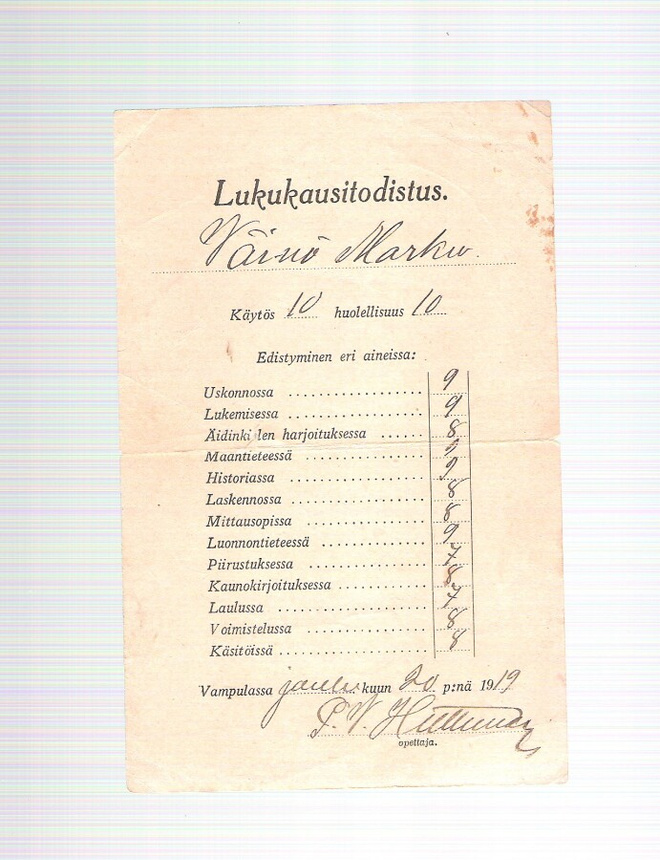 Lukukausitodistus.
Väinö Marku
Käytös 10 huolellisuus 10
Edistyminen eri aineissa:
Uskonnossa 9
Lukemisessa 9
Äidinki len harjoituksessa 8
Maantieteessä 9
Historiassa 9
Laskennossa 8
Mittausopissa 8
Luonnontieteessä 9
Piirustuksessa 7
Kaunokirjoituksessa 8
Laulussa 7
Voimistelussa 8
Käsitöissä 8
Vampulassa joulu kuun 20 p:nä 1919
P. V.
opettaja.